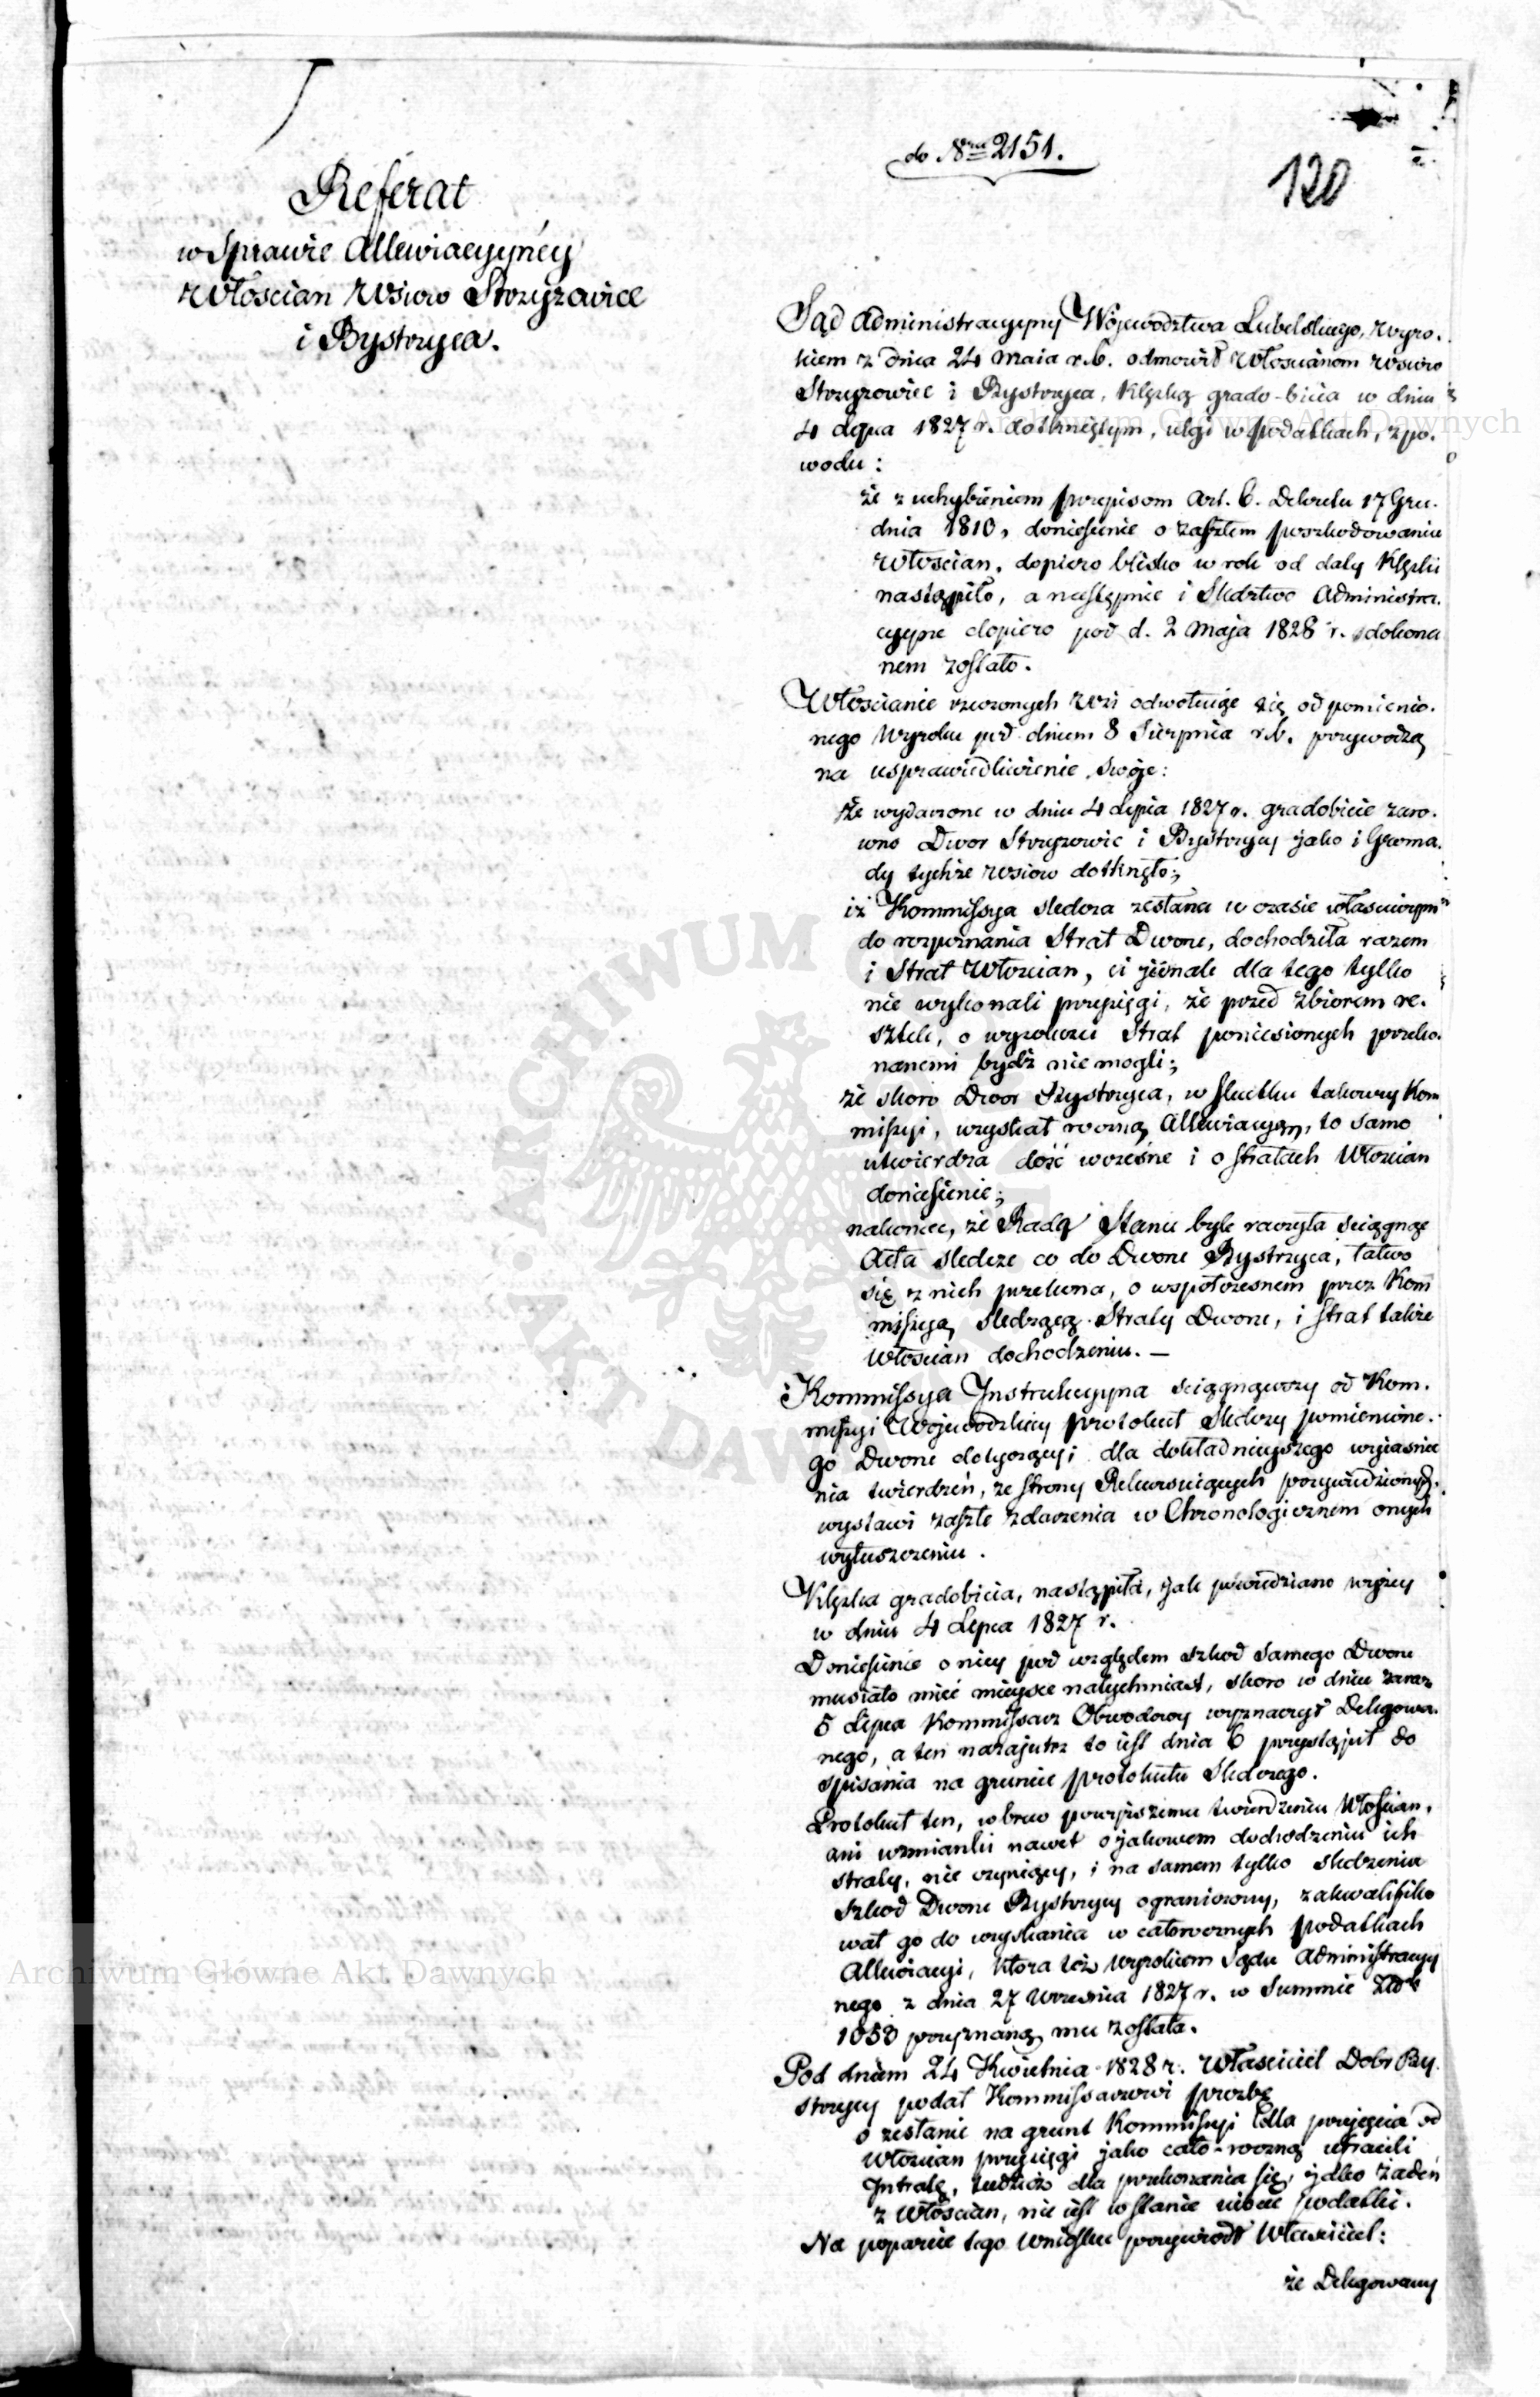 do Nru 2151.
120
Referat
w Sprawie Allewiacyyney
Włoscian Wsiow Strzyżowice
i Bystrzyca.
Sąd Administracyyny Wojewodztwa Lubelskiego, Wyro-
kiem z dnia 24 Maia r.b. odmowił Włoscianom Wsiow
Strzyzowice i Bystrzyca, Klęską grado-bicia w dniu
4 Lipca 1827 r. dotkniętym, ulgi w podatkach, z po-
wodu:
że z uchybieniem przepisom Art. 6. Dekretu 17 Gru-
dnia 1810, doniesienie o zaszłem poszkodowaniu
Włoscian, dopiero blisko w rok od daty Klęski
nastąpiło, a następnie i Sledztwo Administra-
cyyne dopiero pod d. 2 Maja 1828 r. dokona
nem zostało.
Włoscianie rzeczonych Wsi odwołuiąc się od pomienio-
nego Wyroku pod dniem 8 Sierpnia r.b. przywodzą
na usprawiedliwienie swoje:
że wydarzone w dniu 4 Lipca 1827 r. gradobicie zaro-
wno Dwor Strzyzowic i Bystrzycy jako i Groma-
dy tychże Wsiow dotknęło;
iż Kommissya sledcza zesłana w czasie właściwym
do rozpoznania Strat Dworu, dochodziła razem
i Strat Włoscian, ci jednak dla tego tylko
nie wykonali przysięgi, że przed zbiorem re-
sztek, o wysokości Strat poniesionych przeko-
nanemi bydź nie mogli;
że skoro Dwor Bystrzyca, w skutku takowey Kom
missyi, uzyskał roczną Allewiacyą, to samo
utwierdza dość wczesne i o stratach Włoscian
doniesienie;
nakoniec, że Rada Stanu byle raczyła sciągnąć
Akta sledcze co do Dworu Bystrzyca, łatwo
się z nich przekona, o wspołczesnem przez Kom
missyą sledzącą Straty Dworu, i strat także
Włoscian dochodzeniu. —
Kommissya Instrukcyyna sciągnąwszy od Kom-
missyi Wojewodzkiey protokuł Sledczy pomienione-
go Dworu dotyczący; dla dokładnieyszego wyiasnie
nia twierdzeń, ze strony Rekursuiących przywiedzionych,
wystawi zaszłe zdarzenia w Chronologicznem onych
wyłuszczeniu.
Klęska gradobicia, nastąpiła, jak powiedziano wyżey
w dniu 4 Lipca 1827 r.
Doniesienie o niey pod względem szkod samego Dworu
musiało mieć mieysce natychmiast, skoro w dniu zaraz
5 Lipca Kommissarz Obwodowy wyznaczył Delegowa-
nego, a ten nazajutrz to iest dnia 6 przystąpił do
spisania na gruncie protokułu Sledczego.
Protokuł ten, wbrew powyższemu twierdzeniu Włoscian,
ani wzmianki nawet o jakowem dochodzeniu ich
straty, nie czyniący, i na samem tylko sledzeniu
szkod Dworu Bystrzycy ograniczony, zakwalifiko
wał go do uzyskania w całorocznych podatkach
Allewiacyi, ktora też Wyrokiem Sądu Administracyy
nego z dnia 27 Września 1827 r. w Summie Złł.
1053 przyznaną mu została.
Pod dniem 24 Kwietnia 1828 r. Właściciel Dobr By-
strzycy podał Kommissarzowi prozbę
o zesłanie na grunt Kommissyi Cella przyięcia od
Włoscian przysięgi jako cało-roczną utracili
Intratę, tudzież dla przekonania się, jako żaden
z Włościan, nie iest w stanie uiścić podatki.
Na poparcie tego wniosku przywiodł Właściciel:
że Delegowany
Archiwum Główne Akt Dawnych
Archiwum Główne Akt Dawnych